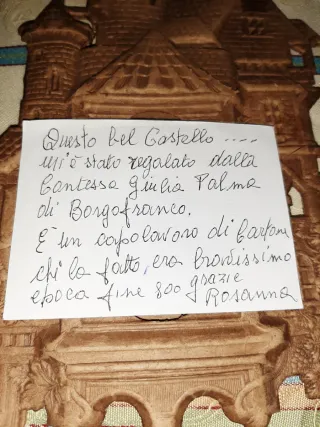 Questo bel Castello ....
mi è stato regalato dalla
Contessa Giulia Palma
di Borgofranco.
E' un capolavoro di Cartone
chi la fatto, era bravissimo
epoca fine 800 grazie
Rosanna